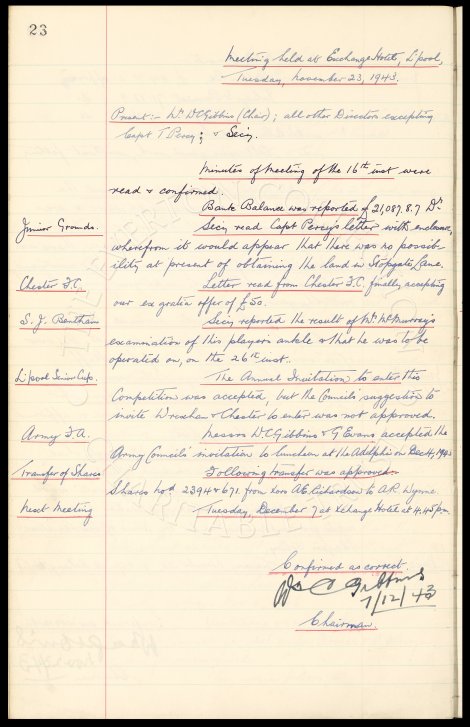 23
Meeting held at Exchange Hotel, L'pool,
Tuesday, November 23, 1943.
Present:- Mr. W.C. Gibbins (Chair); all other Directors excepting
Capt T. Percy; & Secy.
Minutes of Meeting of the 16th inst were
read & confirmed.
Bank Balance was reported £21,087.8.7 Dr.
Junior Grounds. Secy read Capt Percy's letter with enclosure,
wherefrom it would appear that there was no possib-
ility at present of obtaining the land in Stopgate Lane.
Chester F.C. Letter read from Chester F.C. finally accepting
our ex gratia offer of £50.
S. J. Bentham Secy reported the result of Mr. McMurray's
examination of this player's ankle & that he was to be
operated on, on the 26th inst.
L'pool Senior Cup. The Annual Invitation to enter this
Competition was accepted, but the Council's suggestion to
invite Wrexham & Chester to enter was not approved.
Army F.A. Messrs W.C. Gibbins & G. Evans accepted the
Army Council's invitation to luncheon at the Adelphi on Dec 4, 1943
Transfer of Shares Following transfer was approved
Shares nod 2394 & 671 from Exors A.E. Richardson to A.R. Wynne.
Next Meeting Tuesday, December 7 at Xchange Hotel at 4.45 pm.
Confirmed as correct.
Wm C Gibbins
7/12/43
Chairman.